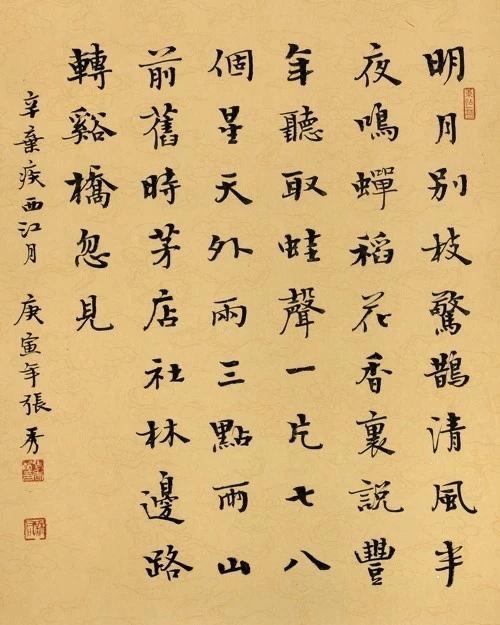 明月别枝驚鵲清風半
夜鳴蟬稻花香裏説豐
年聽取蛙聲一片七八
個星天外兩三點雨山
前舊時茅店社林邊路
轉谿橋忽見
辛棄疾西江月 庚寅年張秀